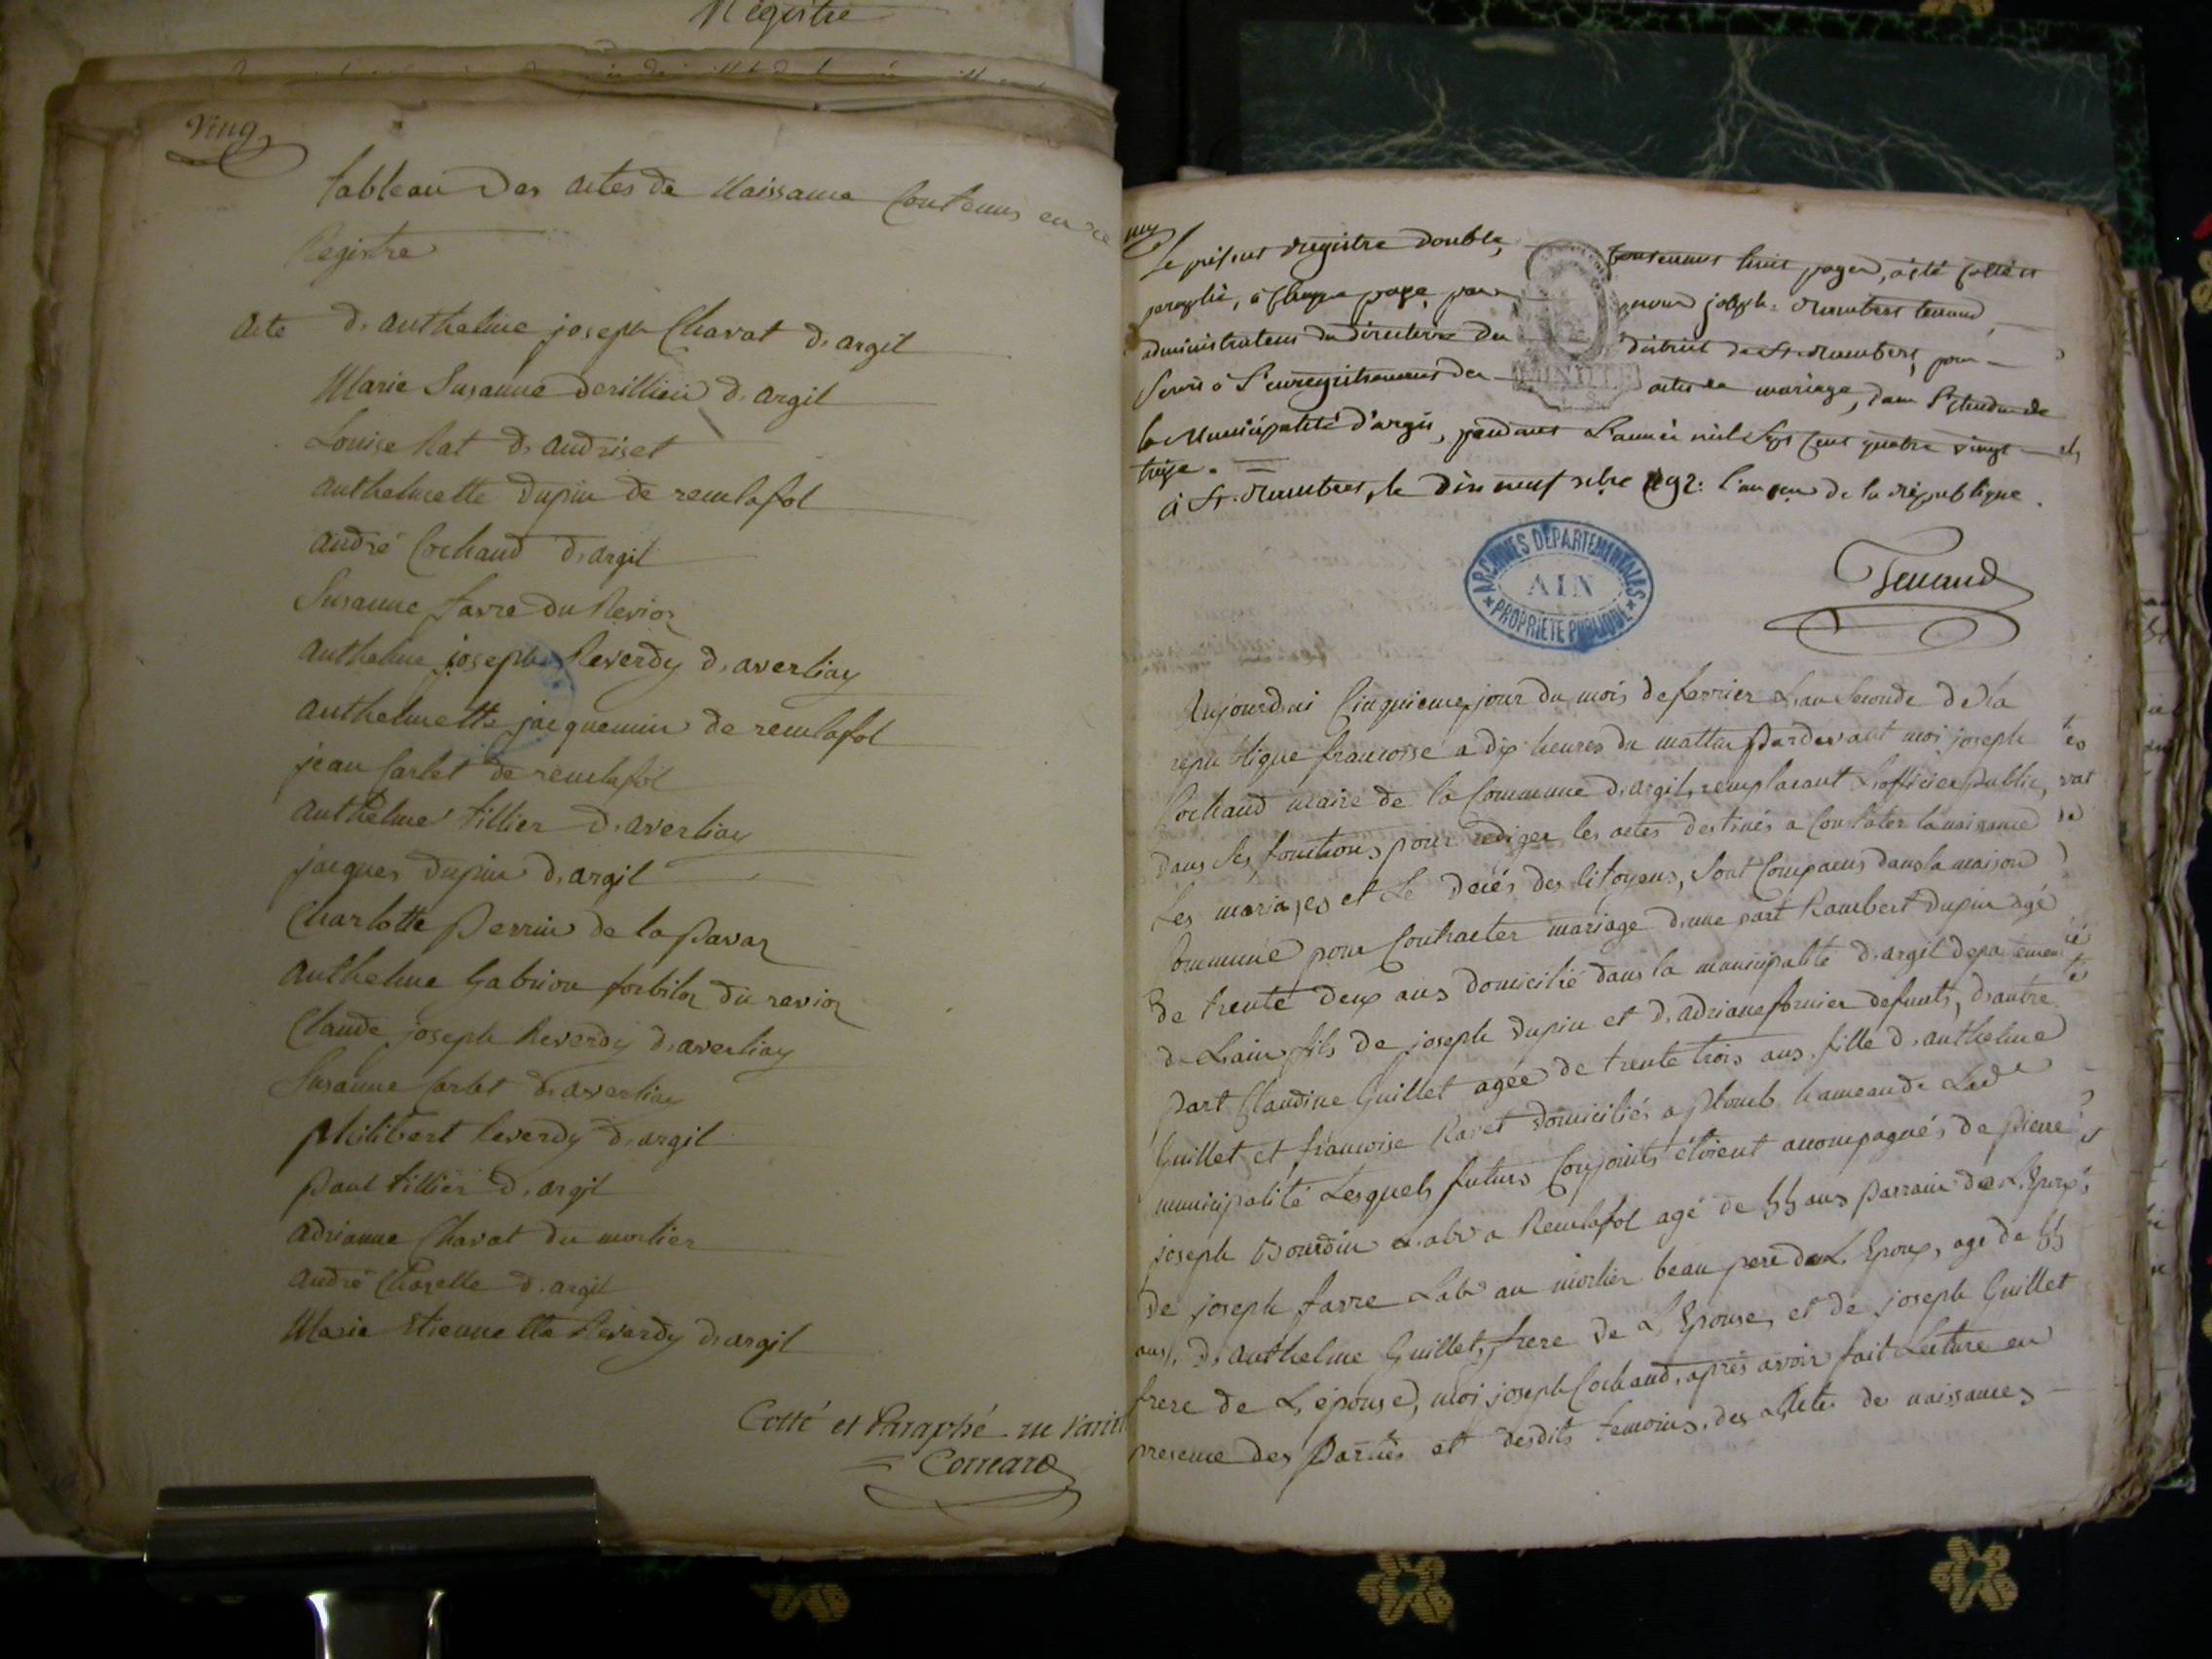 Registre
Ving
tableau Des actes de Naissance Contenus en ce
Registre
acte d. anthelme joseph Chavat d. argil
Marie Susanne derillieu d. argil
Louise Rat d. andriset
anthelmette dupin de remlafol
andré Cochaud d. argil
Susanne favre du Revior
anthelme joseph Reverdy d. averliay
anthelmette jacquemin de remlafol
jean Carlet de remlafol
anthelme tillier d. averliay
jacques dupin d. argil
Charlotte Perrin de la Pavaz
anthelme Gabrion forbilor du revior
Claude joseph Reverdy d. averliay
Susanne Carlet d. averliay
philibert Reverdy d. argil
paul tillier d. argil
adrianne Chavat du mortier
andré Choselle d. argil
Marie Etiennette Reverdy d. argil
Cotté et Paraphé
Le présent registre double, contenant huit pages, a été cotté et
paraphé, à chaque page, par nous joseph-rambert tenand,
administrateur du directoire du district de St. rambert, pour
servir à l'enregistrement des actes de mariage, dans l'étendue de
la Municipalité d'argis, pendant l'année mil sept cent quatre vingt
treize.
à St. rambert, le dix neuf xbre 1792. l'an 1er de la république.
MINUTE
Tenand
ARCHIVES DÉPARTEMENTALES
AIN
PROPRIÉTÉ PUBLIQUE
Aujourdui Cinquieme jour du mois de fevrier L. an Seconde de la
republique francoise a dix heures du mattin Pardevant moi joseph
Cochaud maire de la Commune d. argil, remplacant L. officier public,
dans Ses fonctions pour rediger les actes destinés a Constater la naissance
Les mariages et Le décés des Citoyens, Sont Comparus dans la maison
Commune pour Contracter mariage d. une part Rambert dupin agé
de trente deux ans domicilié dans la municipalité d. argil departement
de L. ain fils de joseph dupin et d. adriane fornier defunts, d. autre
part Claudine Guillet agée de trente trois ans fille d. anthelme
Guillet et francoise Ravet domiciliés a plomb hameau de Lade
municipalité Lesquels futurs Conjoints étoient accompagnés de pierre
joseph Bourdin Remlafol agé de 55 ans parrain de L. Epoux,
de joseph favre Lab. au mortier beau pere de L. Epoux, agé de 55
ans, d. anthelme Guillet, frere de L. Epouse, et de joseph Guillet
frere de L. épouse, moi joseph Cochaud, aprés avoir fait Lecture en
presence des Parties et desdits temoins. des actes de naissances